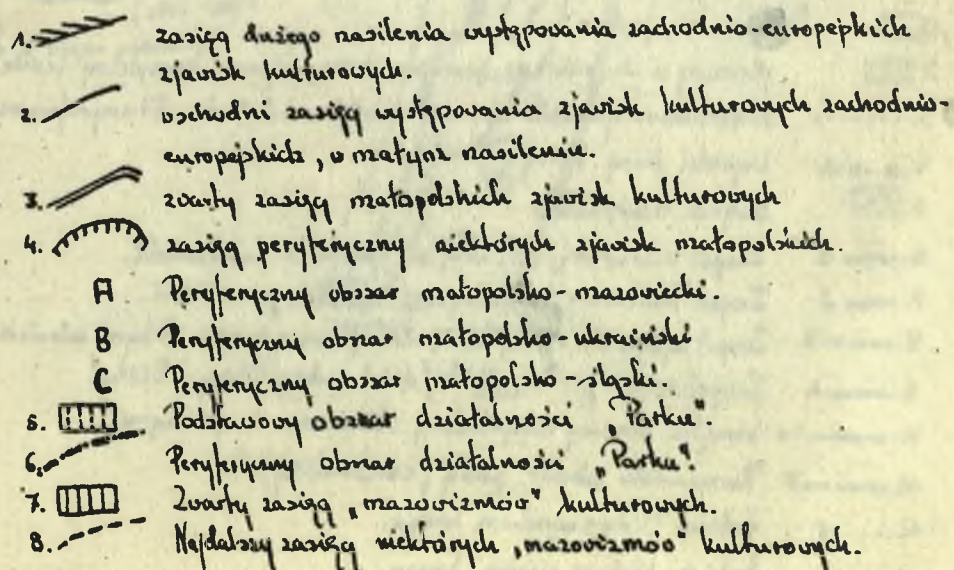 1. zasięg dużego nasilenia występowania zachodnio-europejskich
zjawisk kulturowych.
2. wschodni zasięg występowania zjawisk kulturowych zachodnio-
europejskich, w małym nasileniu.
3. zwarty zasięg małopolskich zjawisk kulturowych
4. zasięg peryferyczny niektórych zjawisk małopolskich.
A Peryferyczny obszar małopolsko-mazowiecki.
B Peryferyczny obszar małopolsko-ukraiński
C Peryferyczny obszar małopolsko-śląski.
5. Podstawowy obszar działalności „Parku".
6. Peryferyczny obszar działalności „Parku".
7. Zwarty zasięg „mazowizmów" kulturowych.
8. Najdalszy zasięg niektórych „mazowizmów" kulturowych.